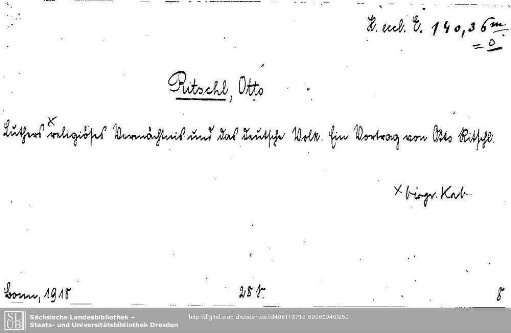 H. eccl. E. 140,36 m
= 0
Ritschl, Otto
Luthers religiöses Vermächtnis und das deutsche Volk. Ein Vortrag von Otto Ritschl.
x biogr. Kat.
Bonn, 1918
28 S.
8
SLUB
Sächsische Landesbibliothek –
Staats- und Universitätsbibliothek Dresden